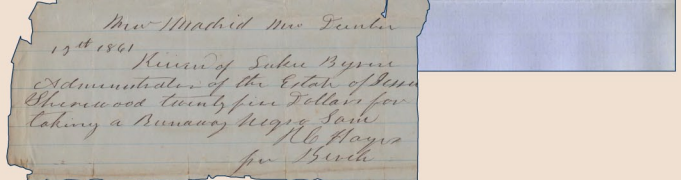 New Madrid Mo
19th 1861
Received of Luke Byrne
Administrator of the Estate of Jesse
Sherwood twenty five Dollars for
taking a Runaway Negro Sam
Hays
per